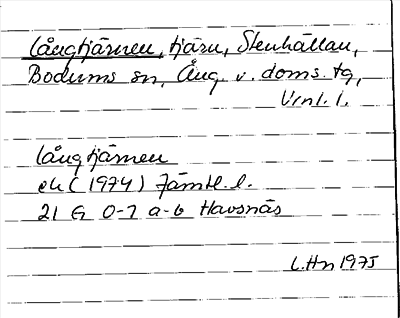 Långtjärnen, tjärn, Stenhällan,
Bodums sn, Ång. v. doms. tg,
Vnl. l.
Långtjärnen
ek (1974) Jämtl. l.
21 G 0-1 a-b Havsnäs
L.Hn 1975